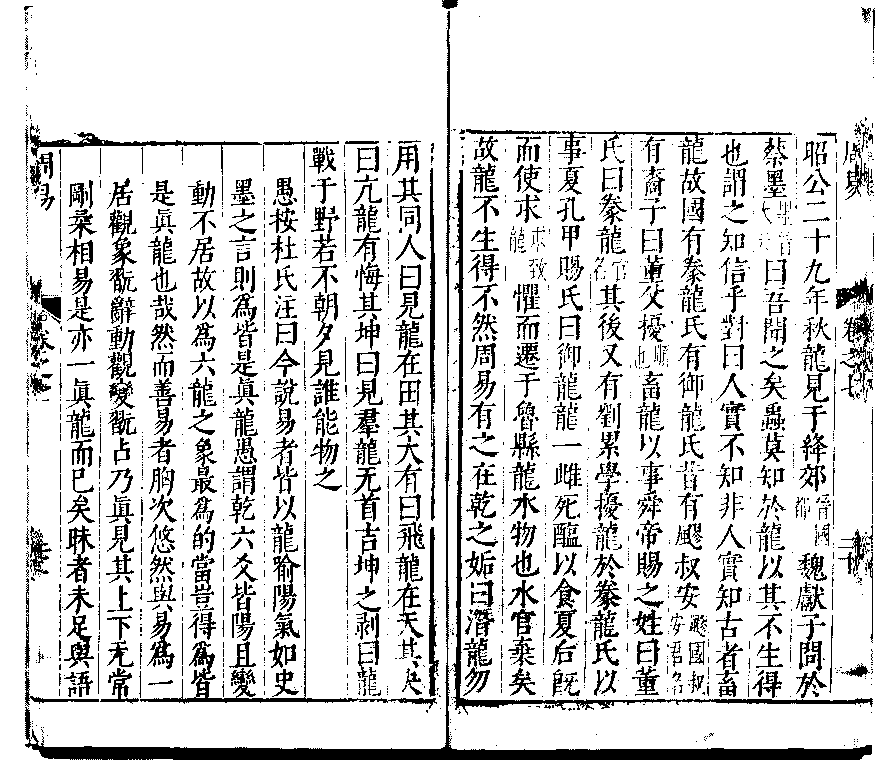 昭公二十九年秋龍見于絳郊晉國都魏獻子問於
蔡墨曰吾聞之矣蟲莫知於龍以其不生得
也謂之知信乎對曰人實不知非人實知古者畜
龍故國有豢龍氏有御龍氏昔有飂叔安飂國叔安君名
有裔子曰董父擾順也畜龍以事舜帝賜之姓曰董
氏曰豢龍官名其後又有劉累學擾龍於豢龍氏以
事夏孔甲賜氏曰御龍龍一雌死醢以食夏后旣
而使求求致龍懼而遷于魯縣龍水物也水官棄矣
故龍不生得不然周易有之在乾之姤曰潛龍勿
用其同人曰見龍在田其大有曰飛龍在天其夬
曰亢龍有悔其坤曰見羣龍无首吉坤之剥曰龍
戰于野若不朝夕見誰能物之
愚按杜氏注曰今說易者皆以龍喻陽氣如史
墨之言則爲皆是眞龍愚謂乾六爻皆陽且變
動不居故以爲六龍之象最爲的當豈得爲皆
是眞龍也哉然而善易者胸次悠然與易爲一
居觀象翫辭動觀變翫占乃眞見其上下无常
剛柔相易是亦一眞龍而已矣昧者未足與語
周易
卷之七